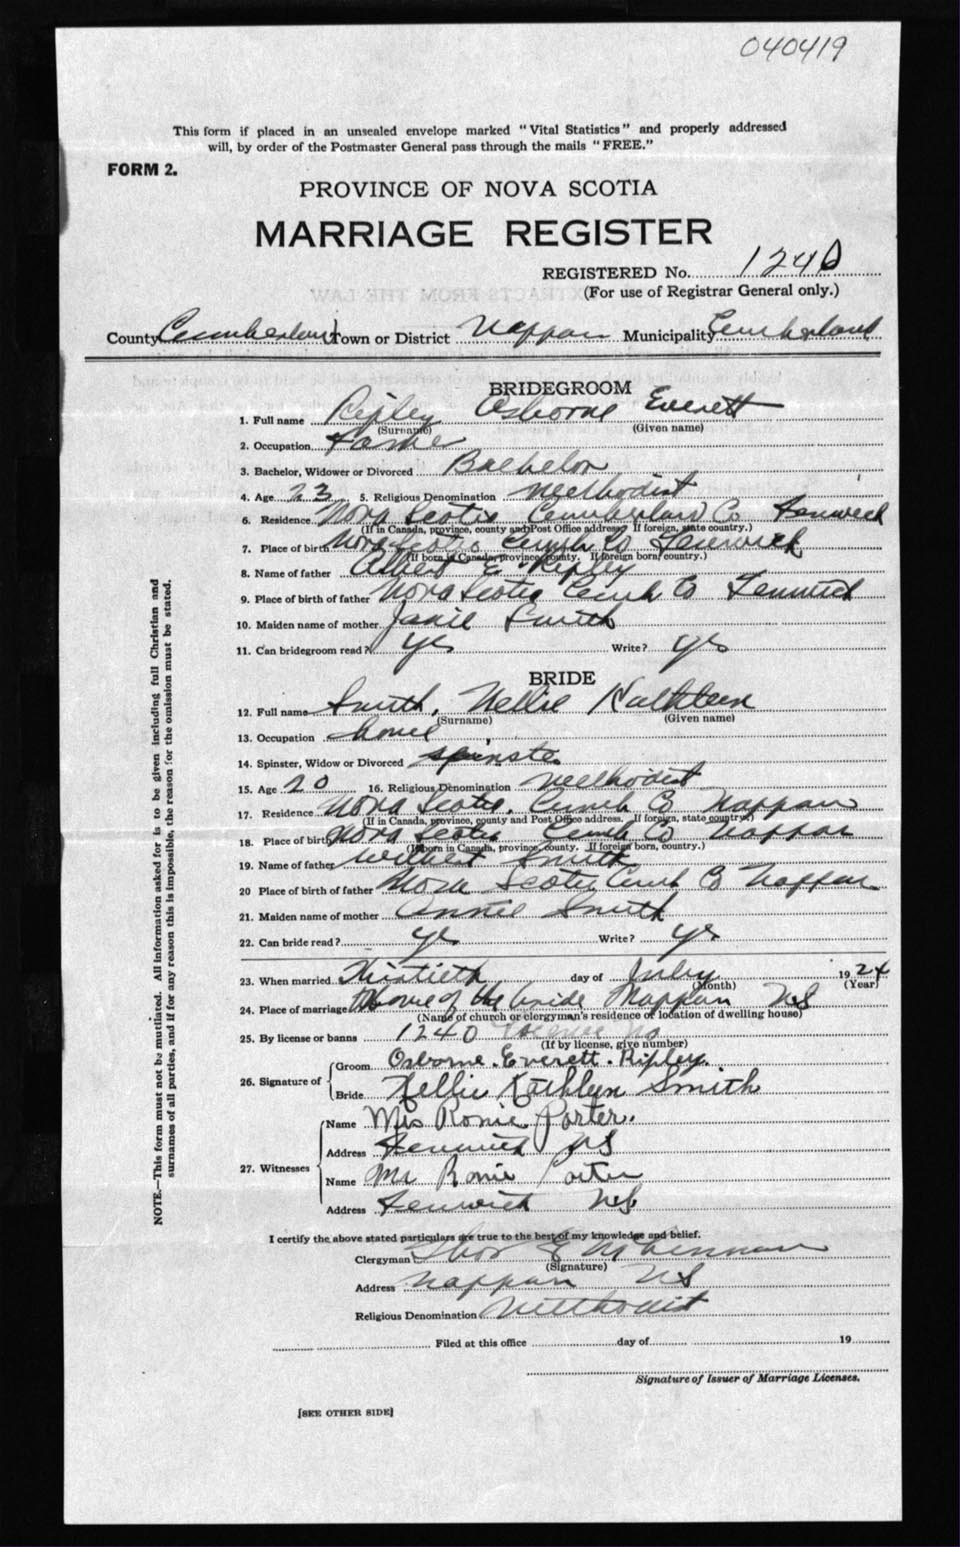 040419
This form if placed in an unsealed envelope marked "Vital Statistics" and properly addressed
will, by order of the Postmaster General pass through the mails "FREE."
FORM 2.
PROVINCE OF NOVA SCOTIA
MARRIAGE REGISTER
REGISTERED No. 1240
(For use of Registrar General only.)
County Cumberland Town or District Nappan Municipality Cumberland
BRIDEGROOM
1. Full name Ripley Osborne Everett
(Surname) (Given name)
2. Occupation Farmer
3. Bachelor, Widower or Divorced Bachelor
4. Age 23 5. Religious Denomination Methodist
6. Residence Nova Scotia Cumberland Co Fenwick
(If in Canada, province, county and Post Office address. If foreign, state country.)
7. Place of birth Nova Scotia Cumb Co Fenwick
(If born in Canada, province, county. If foreign born, country.)
8. Name of father Albert E Ripley
9. Place of birth of father Nova Scotia Cumb Co Fenwick
10. Maiden name of mother Janie Smith
11. Can bridegroom read? yes Write? yes
BRIDE
12. Full name Smith, Nellie Kathleen
(Surname) (Given name)
13. Occupation Home
14. Spinster, Widow or Divorced spinster
15. Age 20 16. Religious Denomination Methodist
17. Residence Nova Scotia, Cumb Co Nappan
(If in Canada, province, county and Post Office address. If foreign, state country.)
18. Place of birth Nova Scotia Cumb Co Nappan
(If born in Canada, province, county. If foreign born, country.)
19. Name of father Wilbert Smith
20 Place of birth of father Nova Scotia Cumb Co Nappan
21. Maiden name of mother Annie Smith
22. Can bride read? yes Write? yes
23. When married Thirtieth day of July 1924
(Month) (Year)
24. Place of marriage Home of the bride Nappan NS
(Name of church or clergyman's residence or location of dwelling house)
25. By license or banns 1240 License No
(If by license, give number)
26. Signature of Groom Osborne. Everett. Ripley.
Bride Nellie Kathleen Smith
27. Witnesses Name Mrs Ronie Porter.
Address Fenwick NS
Name Mr Ronie Porter
Address Fenwick NS
I certify the above stated particulars are true to the best of my knowledge and belief.
Clergyman
(Signature)
Address Nappan NS
Religious Denomination Methodist
Filed at this office day of 19
Signature of Issuer of Marriage Licenses.
[SEE OTHER SIDE]
NOTE.—This form must not be mutilated. All information asked for is to be given including full Christian and
surnames of all parties, and if for any reason this is impossible, the reason for the omission must be stated.